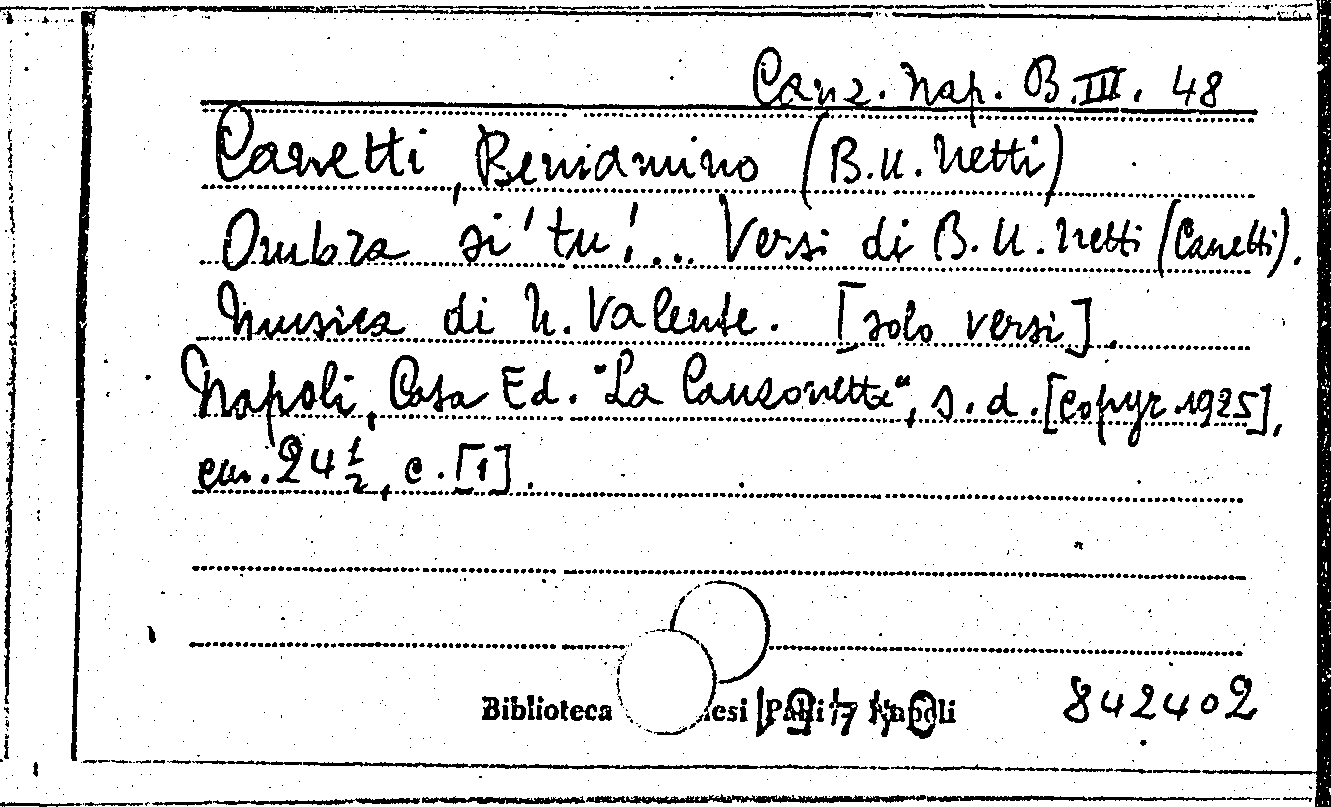 Canz. Nap. B.III. 48
Canetti, Beniamino (B.U. Netti)
Ombra si' tu!... Versi di B.U. Netti (Canetti).
Musica di N. Valente. [solo versi].
Napoli, Casa Ed. "La Canzonetta", s.d. [Copyr. 1925],
cm. 24 1/2, c. [1].
Biblioteca esi Napoli 842402